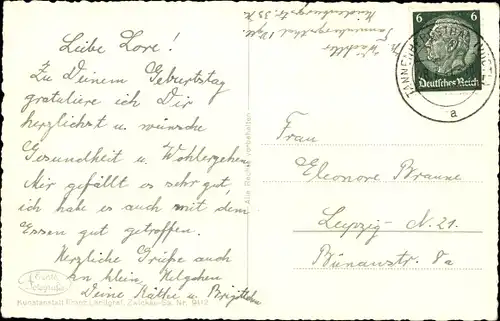 Liebe Lore!
Zu Deinem Geburtstag
gratuliere ich Dir
herzlichst u. wünsche
Gesundheit u. Wohlergehen
Mir gefällt es sehr gut,
ich habe es auch mit dem
Essen gut getroffen.
Herzliche Grüße auch
an klein Helgchen
Deine Käthe u. Brigittchen
Kunstanstalt Franz Landgraf, Zwickau-Sa. Nr. 9412
Alle Rechte vorbehalten
Tannenbergsthal Vogtl.
Hindenburgstr.
6 6
Deutsches Reich
a
Frau
Eleonore Braune
Leipzig - N. 21.